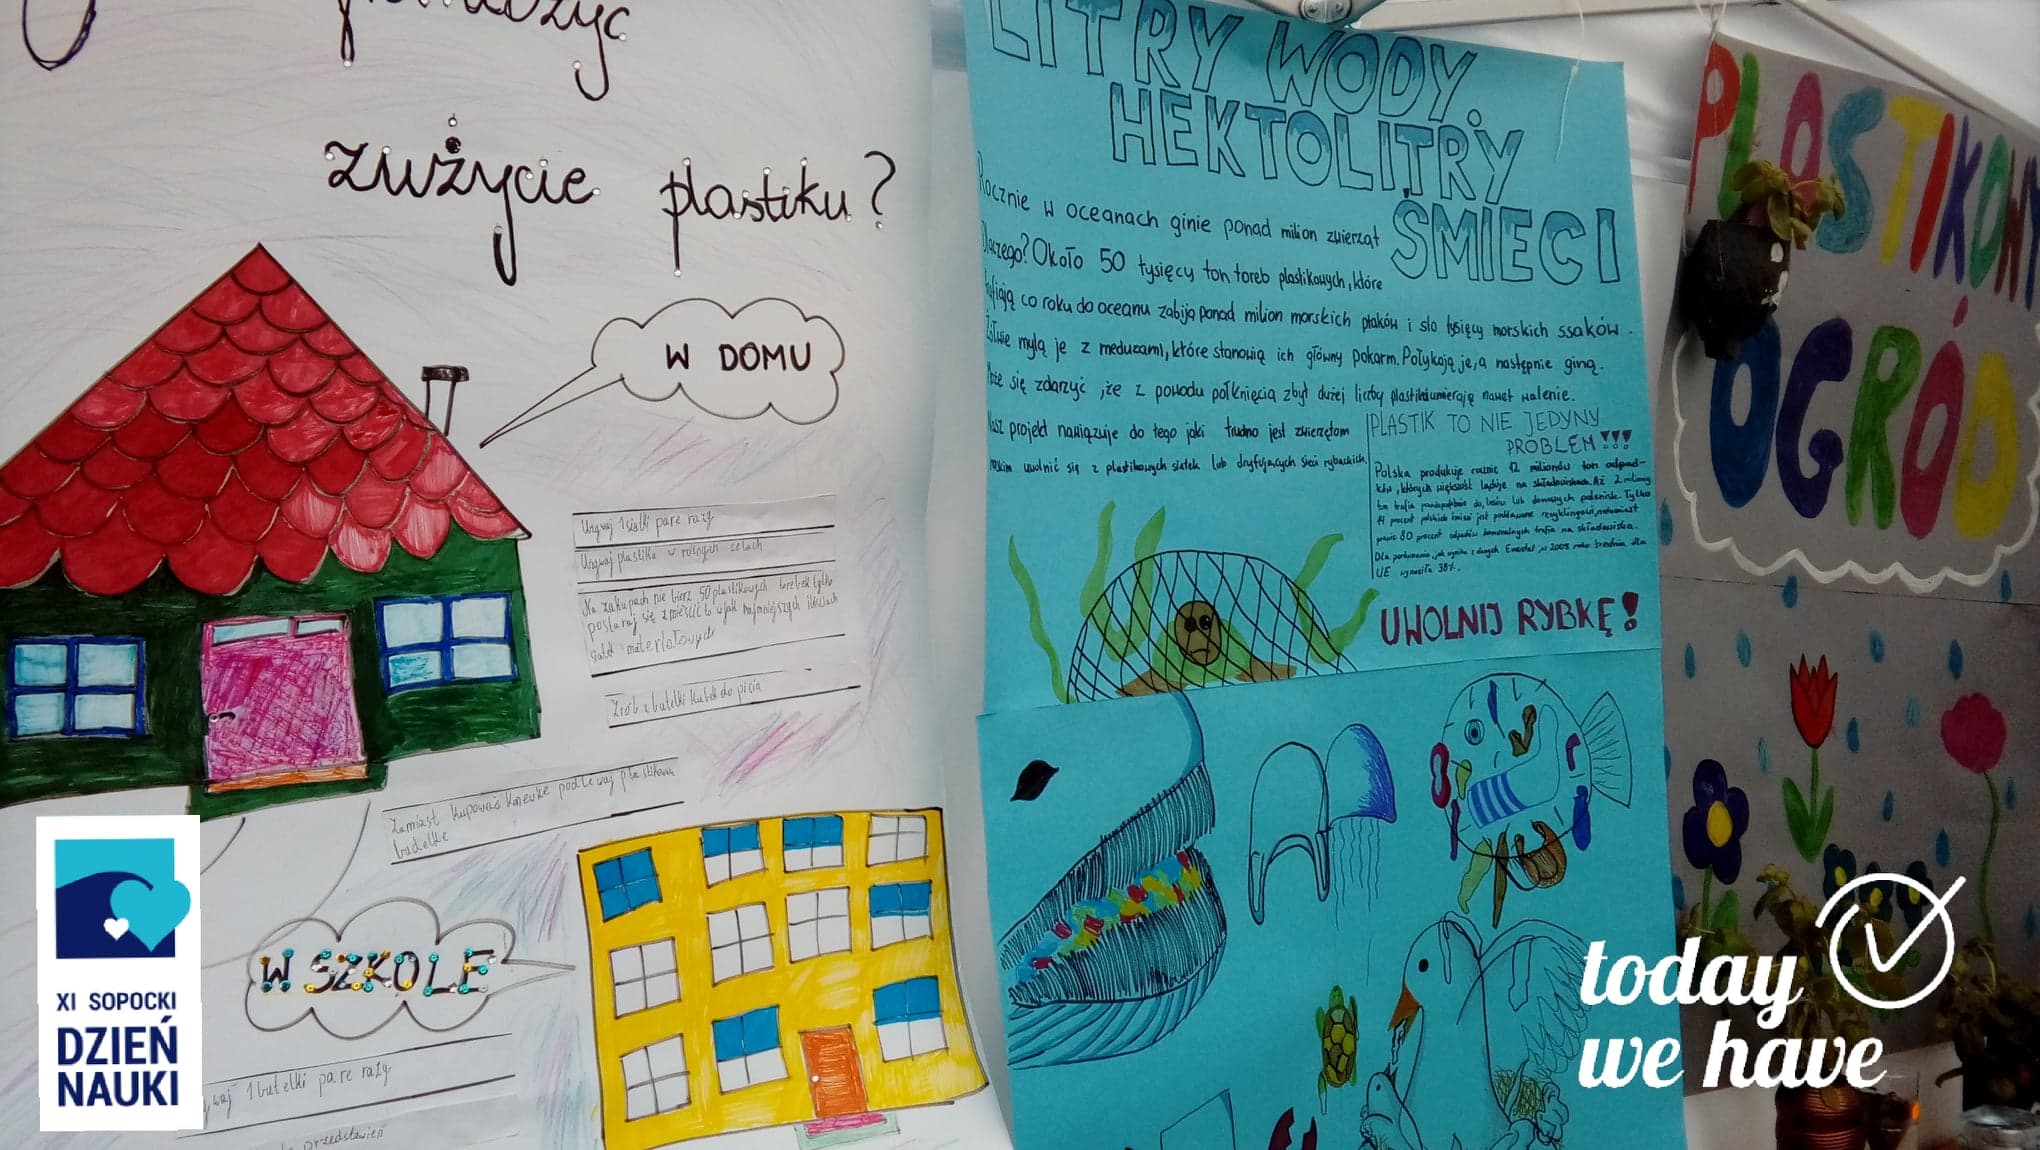 zużycie plastiku?
W DOMU
Używaj 1 siatki pare razy
Używaj plastiku w różnych celach
Na zakupach nie bierz 50 plastikowych torebek tylko
postaraj się zmieścić to w jak najmniejszych ilościach
siatek materiałowych
Zrób z butelki kubek do picia
Zamiast kupować konewkę podlewaj plastikową
butelką
W SZKOLE
1 butelki pare razy
przedstawień
XI SOPOCKI
DZIEŃ
NAUKI
LITRY WODY.
HEKTOLITRY
ŚMIECI
Rocznie w oceanach ginie ponad milion zwierząt
Dlaczego? Około 50 tysięcy ton toreb plastikowych, które
trafiają co roku do oceanu zabija ponad milion morskich ptaków i sto tysięcy morskich ssaków.
Żółwie mylą je z meduzami, które stanowią ich główny pokarm. Połykają je, a następnie giną.
Może się zdarzyć, że z powodu połknięcia zbyt dużej liczby plastiku umierają nawet walenie.
Nasz projekt nawiązuje do tego jak trudno jest zwierzętom
morskim uwolnić się z plastikowych siatek lub dryfujących sieci rybackich.
PLASTIK TO NIE JEDYNY
PROBLEM!!!
Polska produkuje rocznie 12 milionów ton odpad-
ków, których większość ląduje na składowiskach. Aż 2 miliony
ton trafia prawdopodobnie do lasów lub domowych palenisk. Tylko
procent polskich śmieci jest poddawane recyklingowi, natomiast
prawie 80 procent odpadów komunalnych trafia na składowiska.
Dla porównania, jak wynika z danych Eurostat, w 2009 roku średnia dla
UE wynosiła 38%.
UWOLNIJ RYBKĘ!
PLASTIKOWY
OGRÓD
today
we have